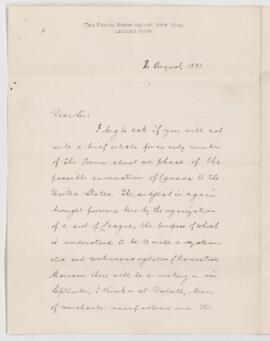 The Forum, Union Square, New York,
Editor's Room.
2 August, 1893.
Dear Sir:
I beg to ask if you will not
write a brief article for an early number
of The Forum about one phase of the
possible annexation of Canada to the
United States. The subject is again
brought forward here by the organization
of a sort of League, the purpose of which
is understood to be to make a systematic
and continuous agitation of Annexation.
Moreover there will be a meeting in
September, I think at Duluth, Minn,
of merchants, manufacturers and the